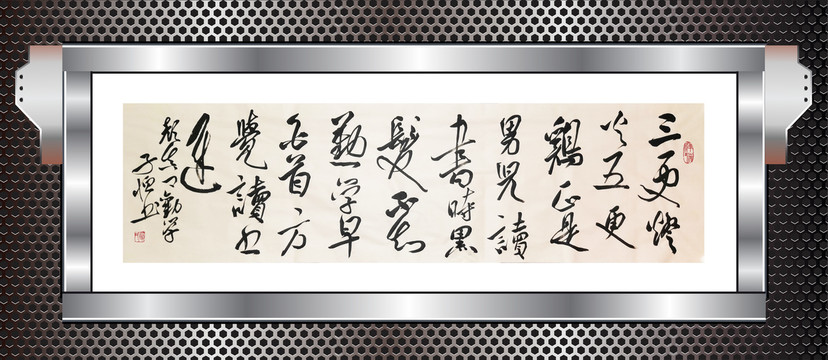 三更燈
火五更
鷄正是
男兒讀
書時黑
髮不知
勤学早
白首方
讀书
遲
顏真卿勸学
子恒书